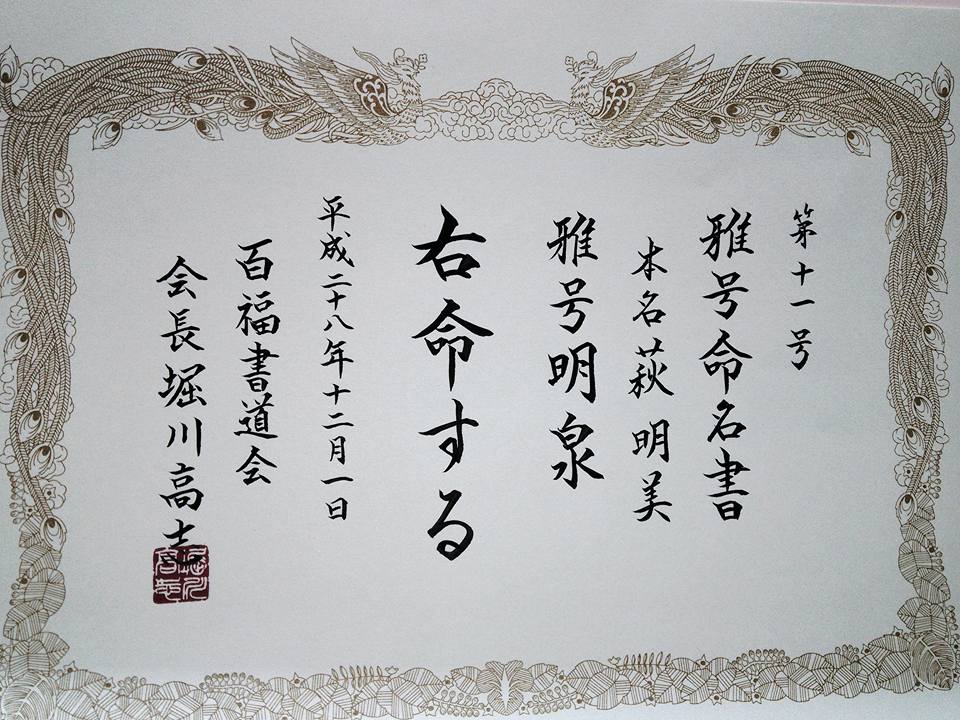 第十一号
雅号命名書
本名萩明美
雅号明泉
右命する
平成二十八年十二月一日
百福書道会
会長堀川高志